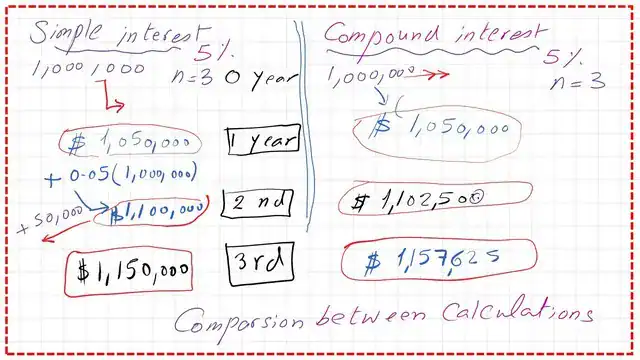 Simple interest
5%
1,000,000
n=3
0 year
$ 1,050,000
1 year
+ 0.05(1,000,000)
+50,000
$1,100,000
2 nd
$1,150,000
3rd
Compound interest
5%
1,000,000
n=3
$ 1,050,000
$ 1,102,500
$ 1,157,625
Comparsion between Calculations